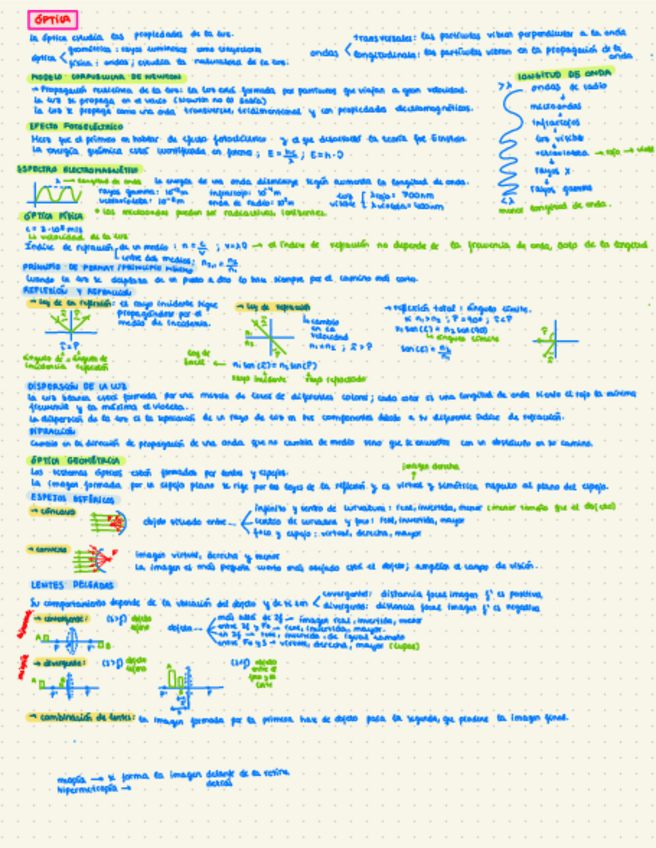 ÓPTICA
La óptica estudia las propiedades de la luz.
óptica < geométrica: rayos luminosos como trayectoria
física: ondas; estudia la naturaleza de la luz.
ondas < transversales: las partículas vibran perpendicular a la onda
longitudinales: las partículas vibran en la propagación de la onda.
MODELO CORPUSCULAR DE NEWTON
→ Propagación rectilínea de la luz: la luz está formada por partículas que viajan a gran velocidad.
La luz se propaga en el vacío (Newton no lo sabía)
La luz se propaga como una onda transversal, tridimensional y con propiedades electromagnéticas.
LONGITUD DE ONDA
>λ
ondas de radio
microondas
infrarrojos
luz visible
ultravioleta → rojo → violeta
rayos X
rayos gamma
<λ
menor longitud de onda.
EFECTO FOTOELÉCTRICO
Hertz fue el primero en hablar de efecto fotoeléctrico y el que desarrolló la teoría fue Einstein.
La energía química está cuantificada en fotones;
ESPECTRO ELECTROMAGNÉTICO
λ → longitud de onda
la energía de una onda disminuye según aumenta la longitud de onda.
rayos gamma:
infrarrojo:
ultravioleta:
onda de radio:
luz visible
λ rojo: 700nm
λ violeta: 400nm
ÓPTICA FÍSICA
c = 3·10⁸ m/s
La velocidad de la luz
Índice de refracción de un medio: n = c/v
→ el índice de refracción no depende de la frecuencia de onda, solo de la longitud
entre dos medios:
PRINCIPIO DE FERMAT/PRINCIPIO MÍNIMO
Cuando la luz se desplaza de un punto a otro lo hace siempre por el camino más corto.
REFLEXIÓN Y REFRACCIÓN
→ Ley de la reflexión: el rayo incidente sigue propagándose por el medio de incidencia.
→ Ley de refracción
La cambia en la velocidad
→ reflexión total: ángulo límite.
ángulo límite
Ley de Snell
rayo incidente
rayo refractado
DISPERSIÓN DE LA LUZ
La luz blanca está formada por una mezcla de luces de diferentes colores; cada color es una longitud de onda siendo el rojo la mínima
frecuencia y la máxima el violeta.
La dispersión de la luz es la separación de un rayo de luz en sus componentes debido a su diferente índice de refracción.
DIFRACCIÓN
Cambio en la dirección de propagación de una onda que no cambia de medio sino que se encuentra con un obstáculo en su camino.
ÓPTICA GEOMÉTRICA
Los sistemas ópticos están formados por lentes y espejos.
imagen derecha
La imagen formada por un espejo plano se rige por las leyes de la reflexión y es virtual y simétrica respecto al plano del espejo.
ESPEJOS ESFÉRICOS
→ cóncavo
objeto situado entre...
infinito y centro de curvatura: real, invertida, menor (menor tamaño que el objeto)
centro de curvatura y foco: real, invertida, mayor
foco y espejo: virtual, derecha, mayor
→ convexo
imagen virtual, derecha y menor
La imagen es más pequeña cuanto más alejado está el objeto; amplía el campo de visión.
LENTES DELGADAS
Su comportamiento depende de la ubicación del objeto y de si son < convergente: distancia focal imagen f' es positiva,
divergente: distancia focal imagen f' es negativa
→ convergente:
objeto...
más allá de 2f → imagen real, invertida, menor
entre 2f y Fo → real, invertida, mayor.
en 2f → real, invertida, de igual tamaño
entre Fo y S → virtual, derecha, mayor (lupas)
miopía
→ divergente:
→ combinación de lentes: la imagen formada por la primera hace de objeto para la segunda, que produce la imagen final.
miopía → se forma la imagen delante de la retina
hipermetropía → detrás